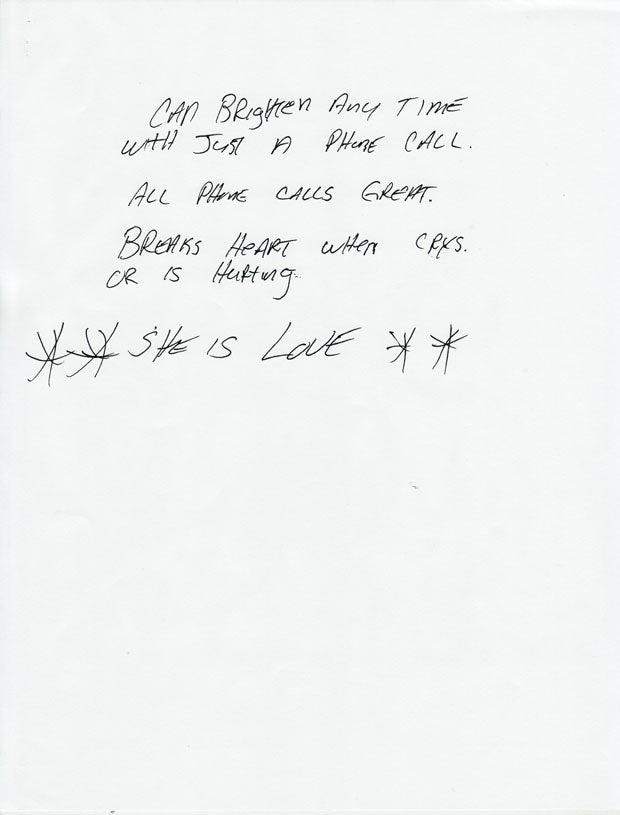 CAN BRighten Any TIME
with Just A PHONE CALL.
ALL PHONE CALLS GREAT.
BREAKS HEART when CRYS.
OR IS Hurting.
** SHE IS LOVE **